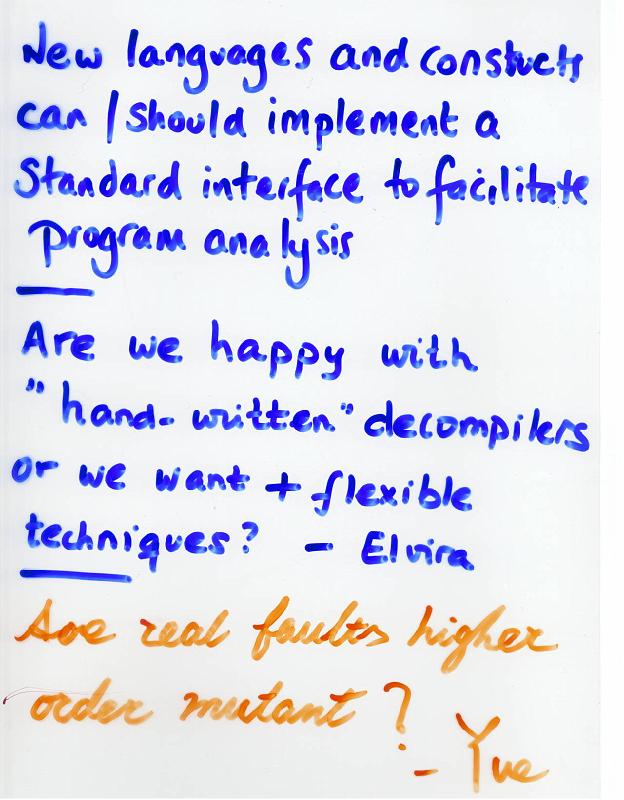 New languages and constucts
can / should implement a
Standard interface to facilitate
program analysis
Are we happy with
"hand-written" decompilers
or we want + flexible
techniques? - Elvira
Are real faults higher
order mutant?
- Yue